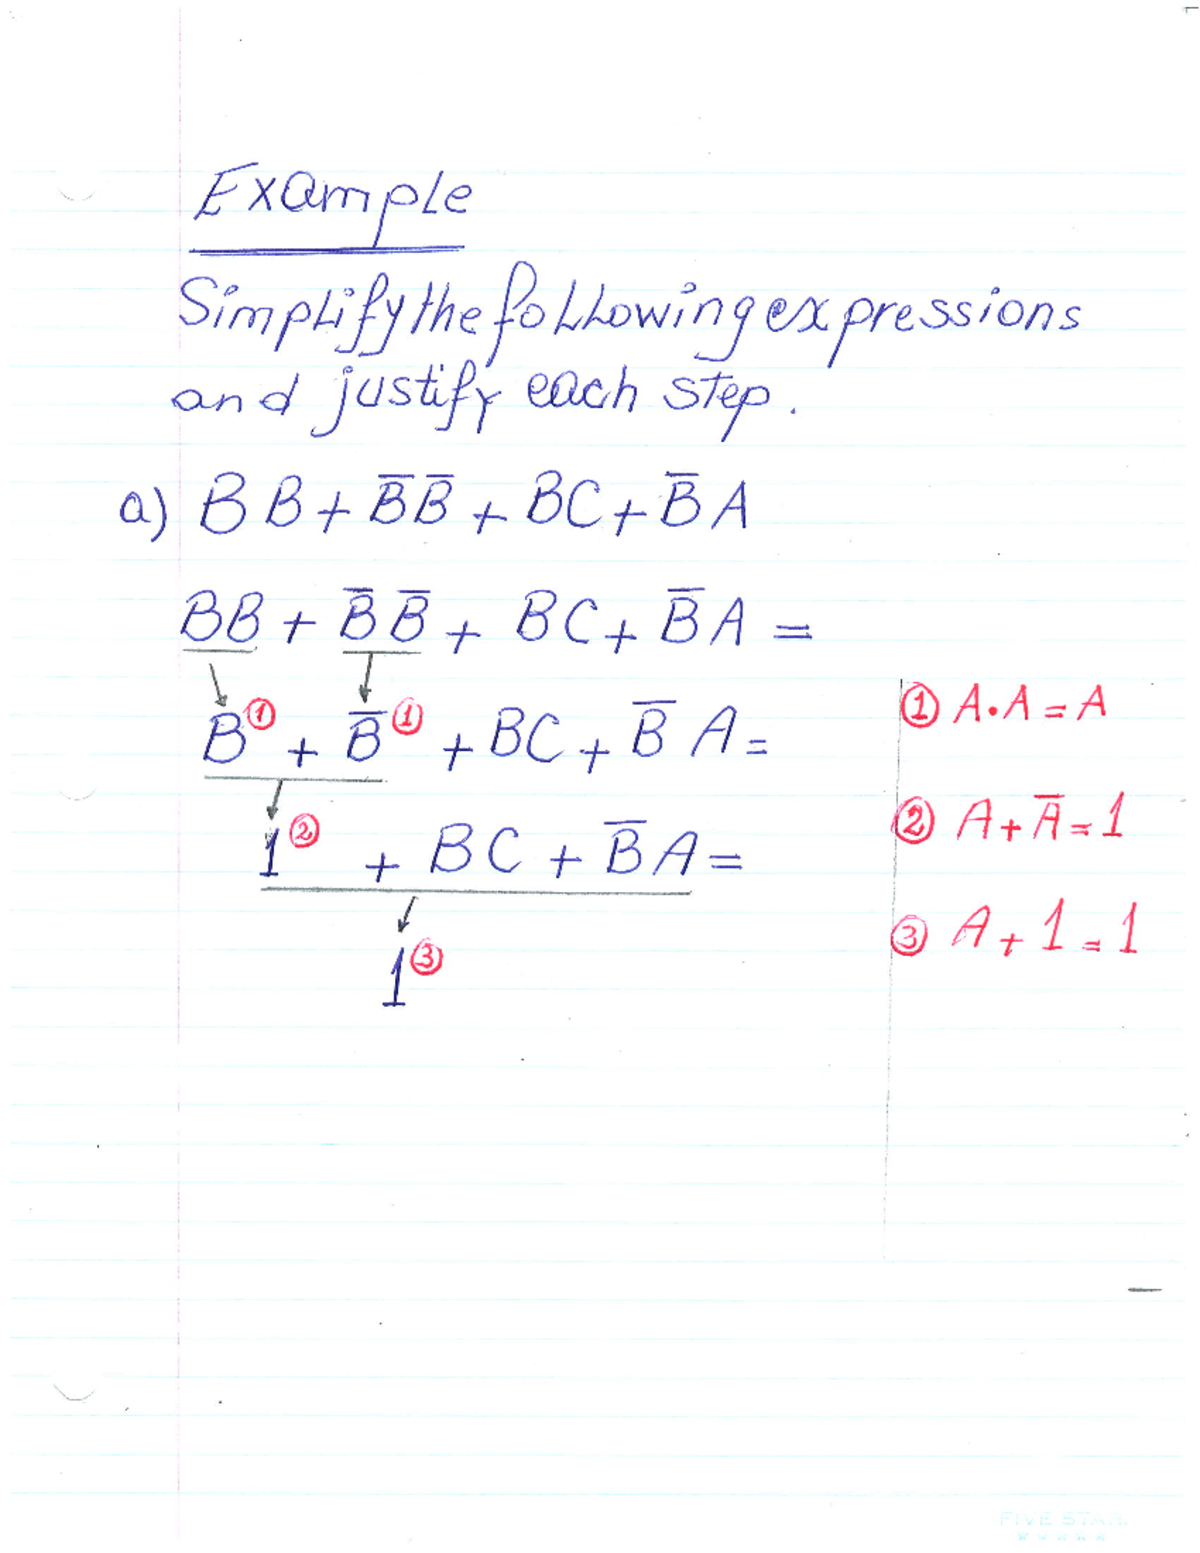 Example
Simplify the following expressions
and justify each step.
a) BB + B̅B̅ + BC + B̅A
BB + B̅B̅ + BC + B̅A =
B① + B̅① + BC + B̅A =
① A·A = A
1② + BC + B̅A =
② A + A̅ = 1
1③
③ A + 1 = 1
FIVE STAR.